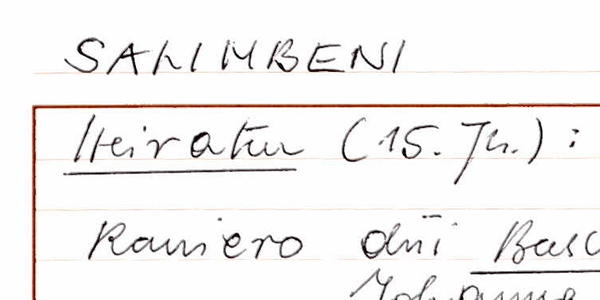 SALIMBENI
Heiraten (15. Jh.):
Raniero dñi